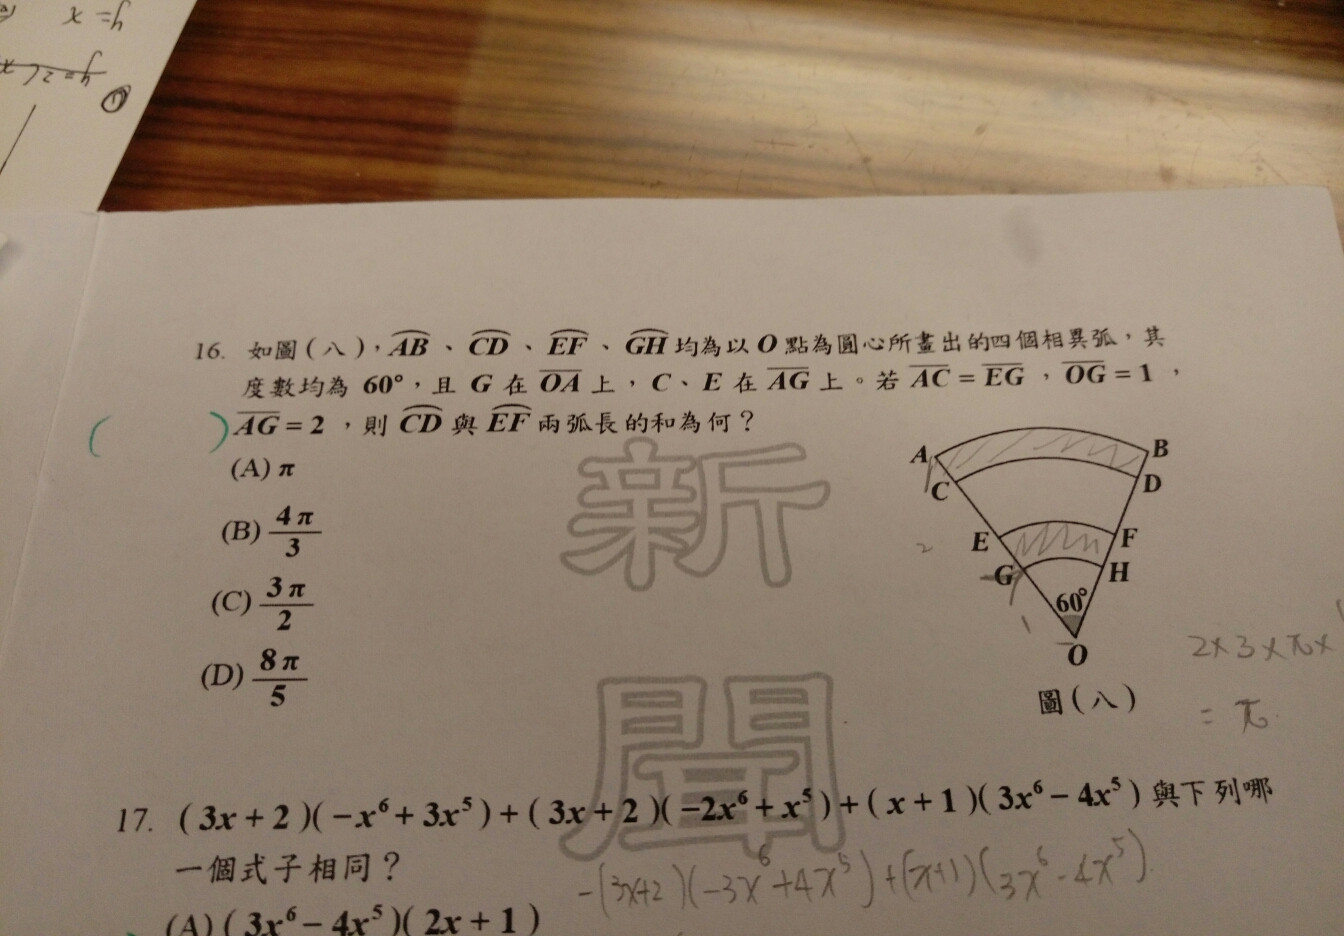 y = x
①
16. 如圖(八),AB、CD、EF、GH均為以O點為圓心所畫出的四個相異弧,其
度數均為 60°,且 G 在 OA 上,C、E 在 AG 上。若 AC = EG,OG = 1,
( ) AG = 2,則 CD 與 EF 兩弧長的和為何?
(A) π
(B) 4π/3
(C) 3π/2
(D) 8π/5
A
B
C
D
E
F
G
H
60°
O
2
1
圖(八)
2×3×π×
= π
新
聞
17. (3x + 2)(-x⁶ + 3x⁵) + (3x + 2)(-2x⁶ + x⁵) + (x + 1)(3x⁶ - 4x⁵) 與下列哪
一個式子相同?
-(3x+2)(-3x⁶+4x⁵)+(x+1)(3x⁶-4x⁵)
(A) (3x⁶ - 4x⁵)(2x + 1)